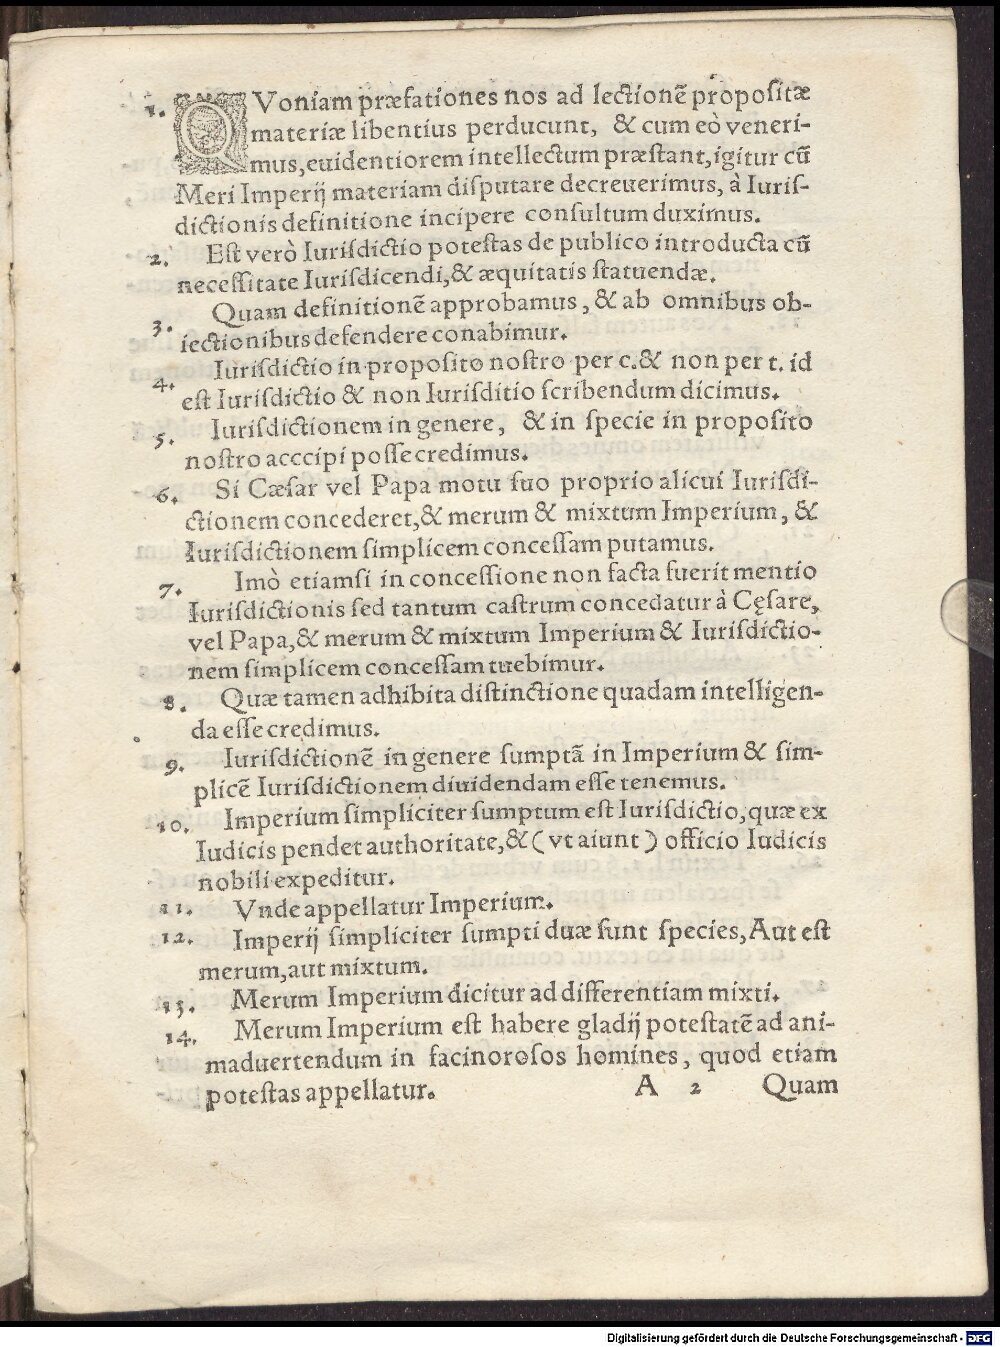 1. QVoniam præfationes nos ad lectionē propositæ
materiæ libentius perducunt, & cum eò veneri-
mus, euidentiorem intellectum præstant, igitur cū
Meri Imperij materiam disputare decreuerimus, à Iuris-
dictionis definitione incipere consultum duximus.
2. Est verò Iurisdictio potestas de publico introducta cū
necessitate Iurisdicendi, & æquitatis statuendæ.
Quam definitionē approbamus, & ab omnibus ob-
3. iectionibus defendere conabimur.
Iurisdictio in proposito nostro per c. & non per t. id
4. est Iurisdictio & non Iurisditio scribendum dicimus.
5. Iurisdictionem in genere, & in specie in proposito
nostro acccipi posse credimus.
6. Si Cæsar vel Papa motu suo proprio alicui Iurisdi-
ctionem concederet, & merum & mixtum Imperium, &
Iurisdictionem simplicem concessam putamus.
7. Imò etiamsi in concessione non facta fuerit mentio
Iurisdictionis sed tantum castrum concedatur à Cęsare,
vel Papa, & merum & mixtum Imperium & Iurisdictio-
nem simplicem concessam tuebimur.
8. Quæ tamen adhibita distinctione quadam intelligen-
da esse credimus.
9. Iurisdictionē in genere sumptā in Imperium & sim-
plicē Iurisdictionem diuidendam esse tenemus.
10. Imperium simpliciter sumptum est Iurisdictio, quæ ex
Iudicis pendet authoritate, & (vt aiunt) officio Iudicis
nobili expeditur.
11. Vnde appellatur Imperium.
12. Imperij simpliciter sumpti duæ sunt species, Aut est
merum, aut mixtum.
13. Merum Imperium dicitur ad differentiam mixti.
14. Merum Imperium est habere gladij potestatē ad ani-
maduertendum in facinorosos homines, quod etiam
potestas appellatur. A 2 Quam
Digitalisierung gefördert durch die Deutsche Forschungsgemeinschaft - DFG